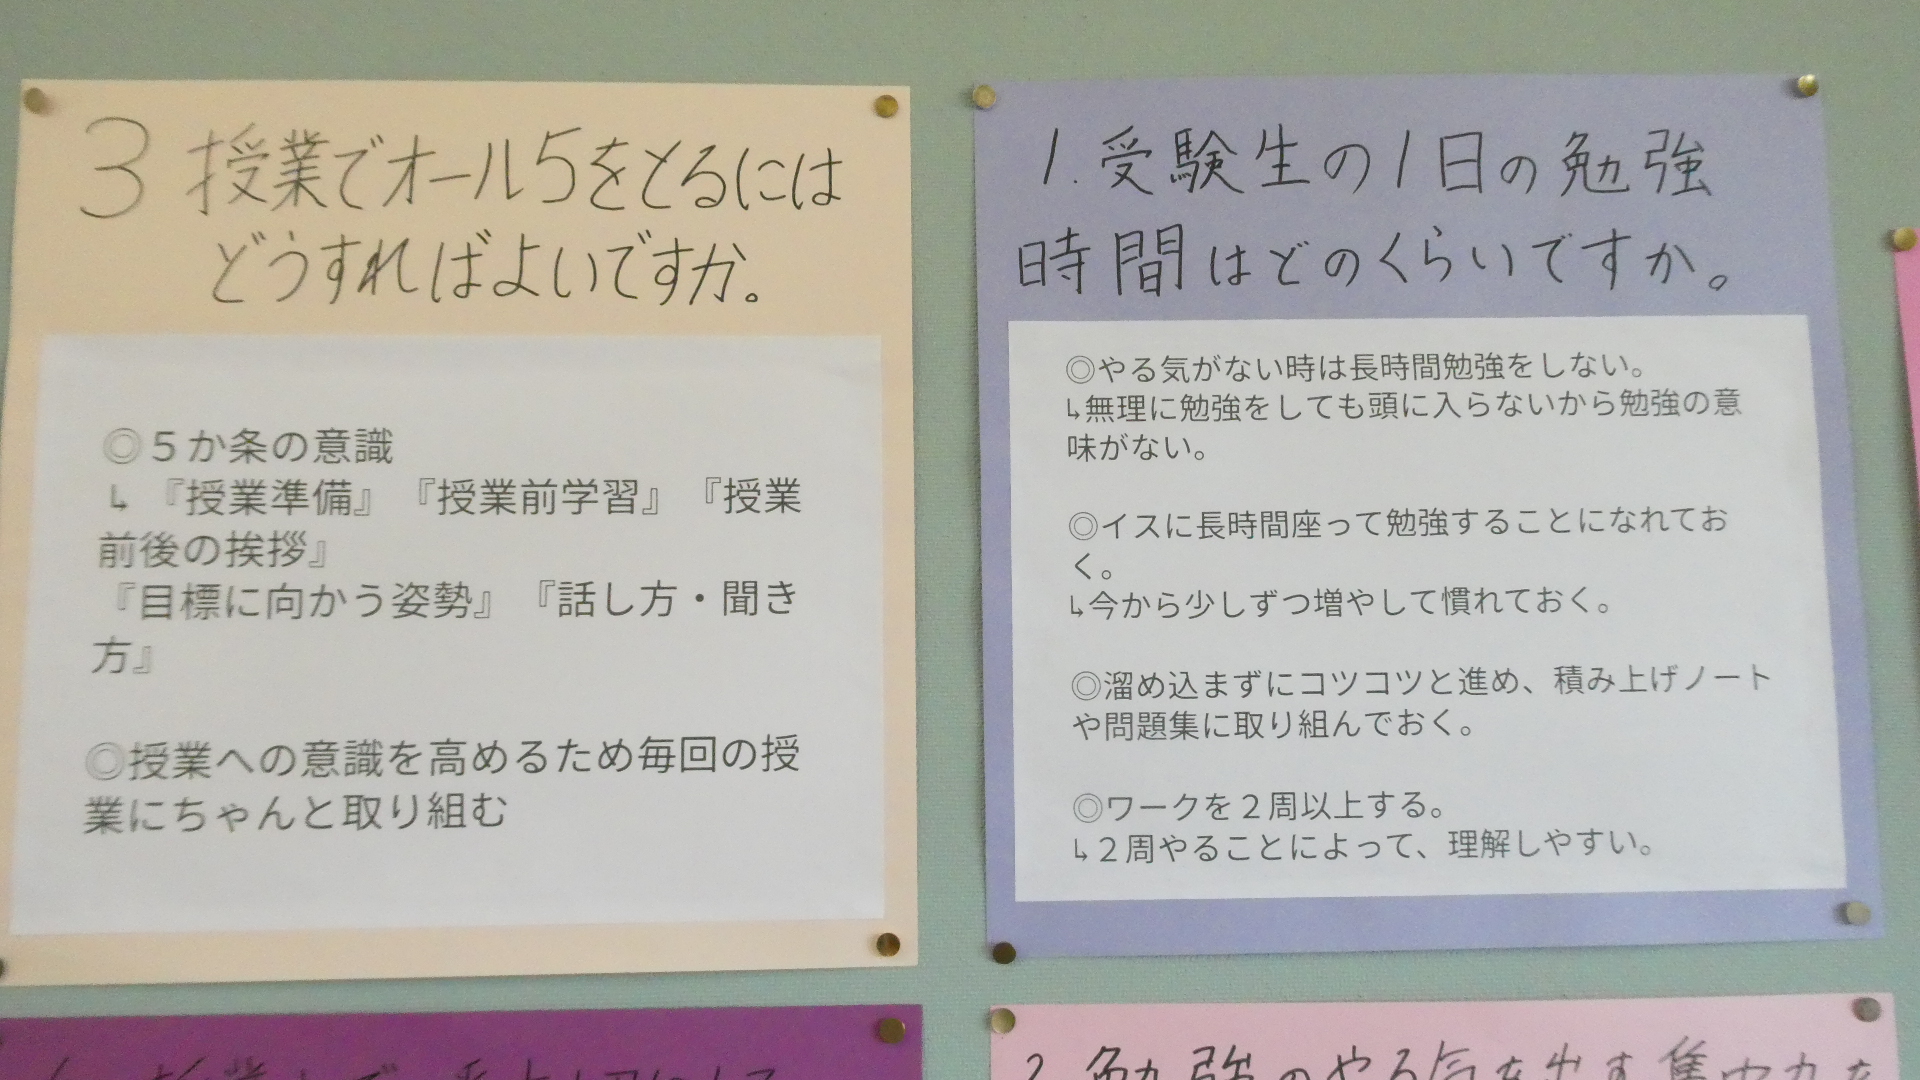 3 授業でオール5をとるには
どうすればよいですか。
◎５か条の意識
↳ 『授業準備』『授業前学習』『授業
前後の挨拶』
『目標に向かう姿勢』『話し方・聞き
方』
◎授業への意識を高めるため毎回の授
業にちゃんと取り組む
1. 受験生の1日の勉強
時間はどのくらいですか。
◎やる気がない時は長時間勉強をしない。
↳無理に勉強をしても頭に入らないから勉強の意
味がない。
◎イスに長時間座って勉強することになれてお
く。
↳今から少しずつ増やして慣れておく。
◎溜め込まずにコツコツと進め、積み上げノート
や問題集に取り組んでおく。
◎ワークを２周以上する。
↳２周やることによって、理解しやすい。
2 勉強のやる気を出す集中力を